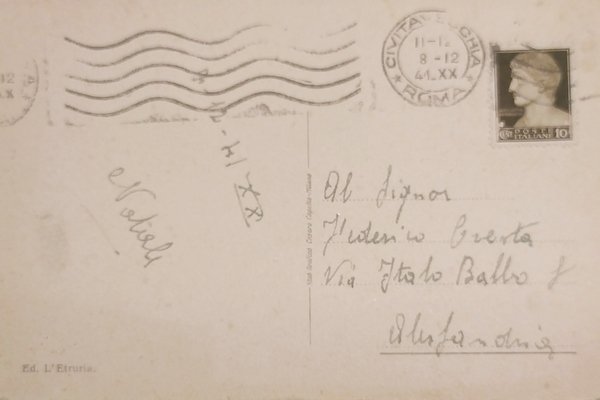 CIVITAVECCHIA
11-12
8-12
41.XX
* ROMA *
POSTE
ITALIANE 10
12-41 XX
Natale
Al Signor
Federico Cresta
Via Italo Balbo
Alessandria
Ed. L'Etruria.